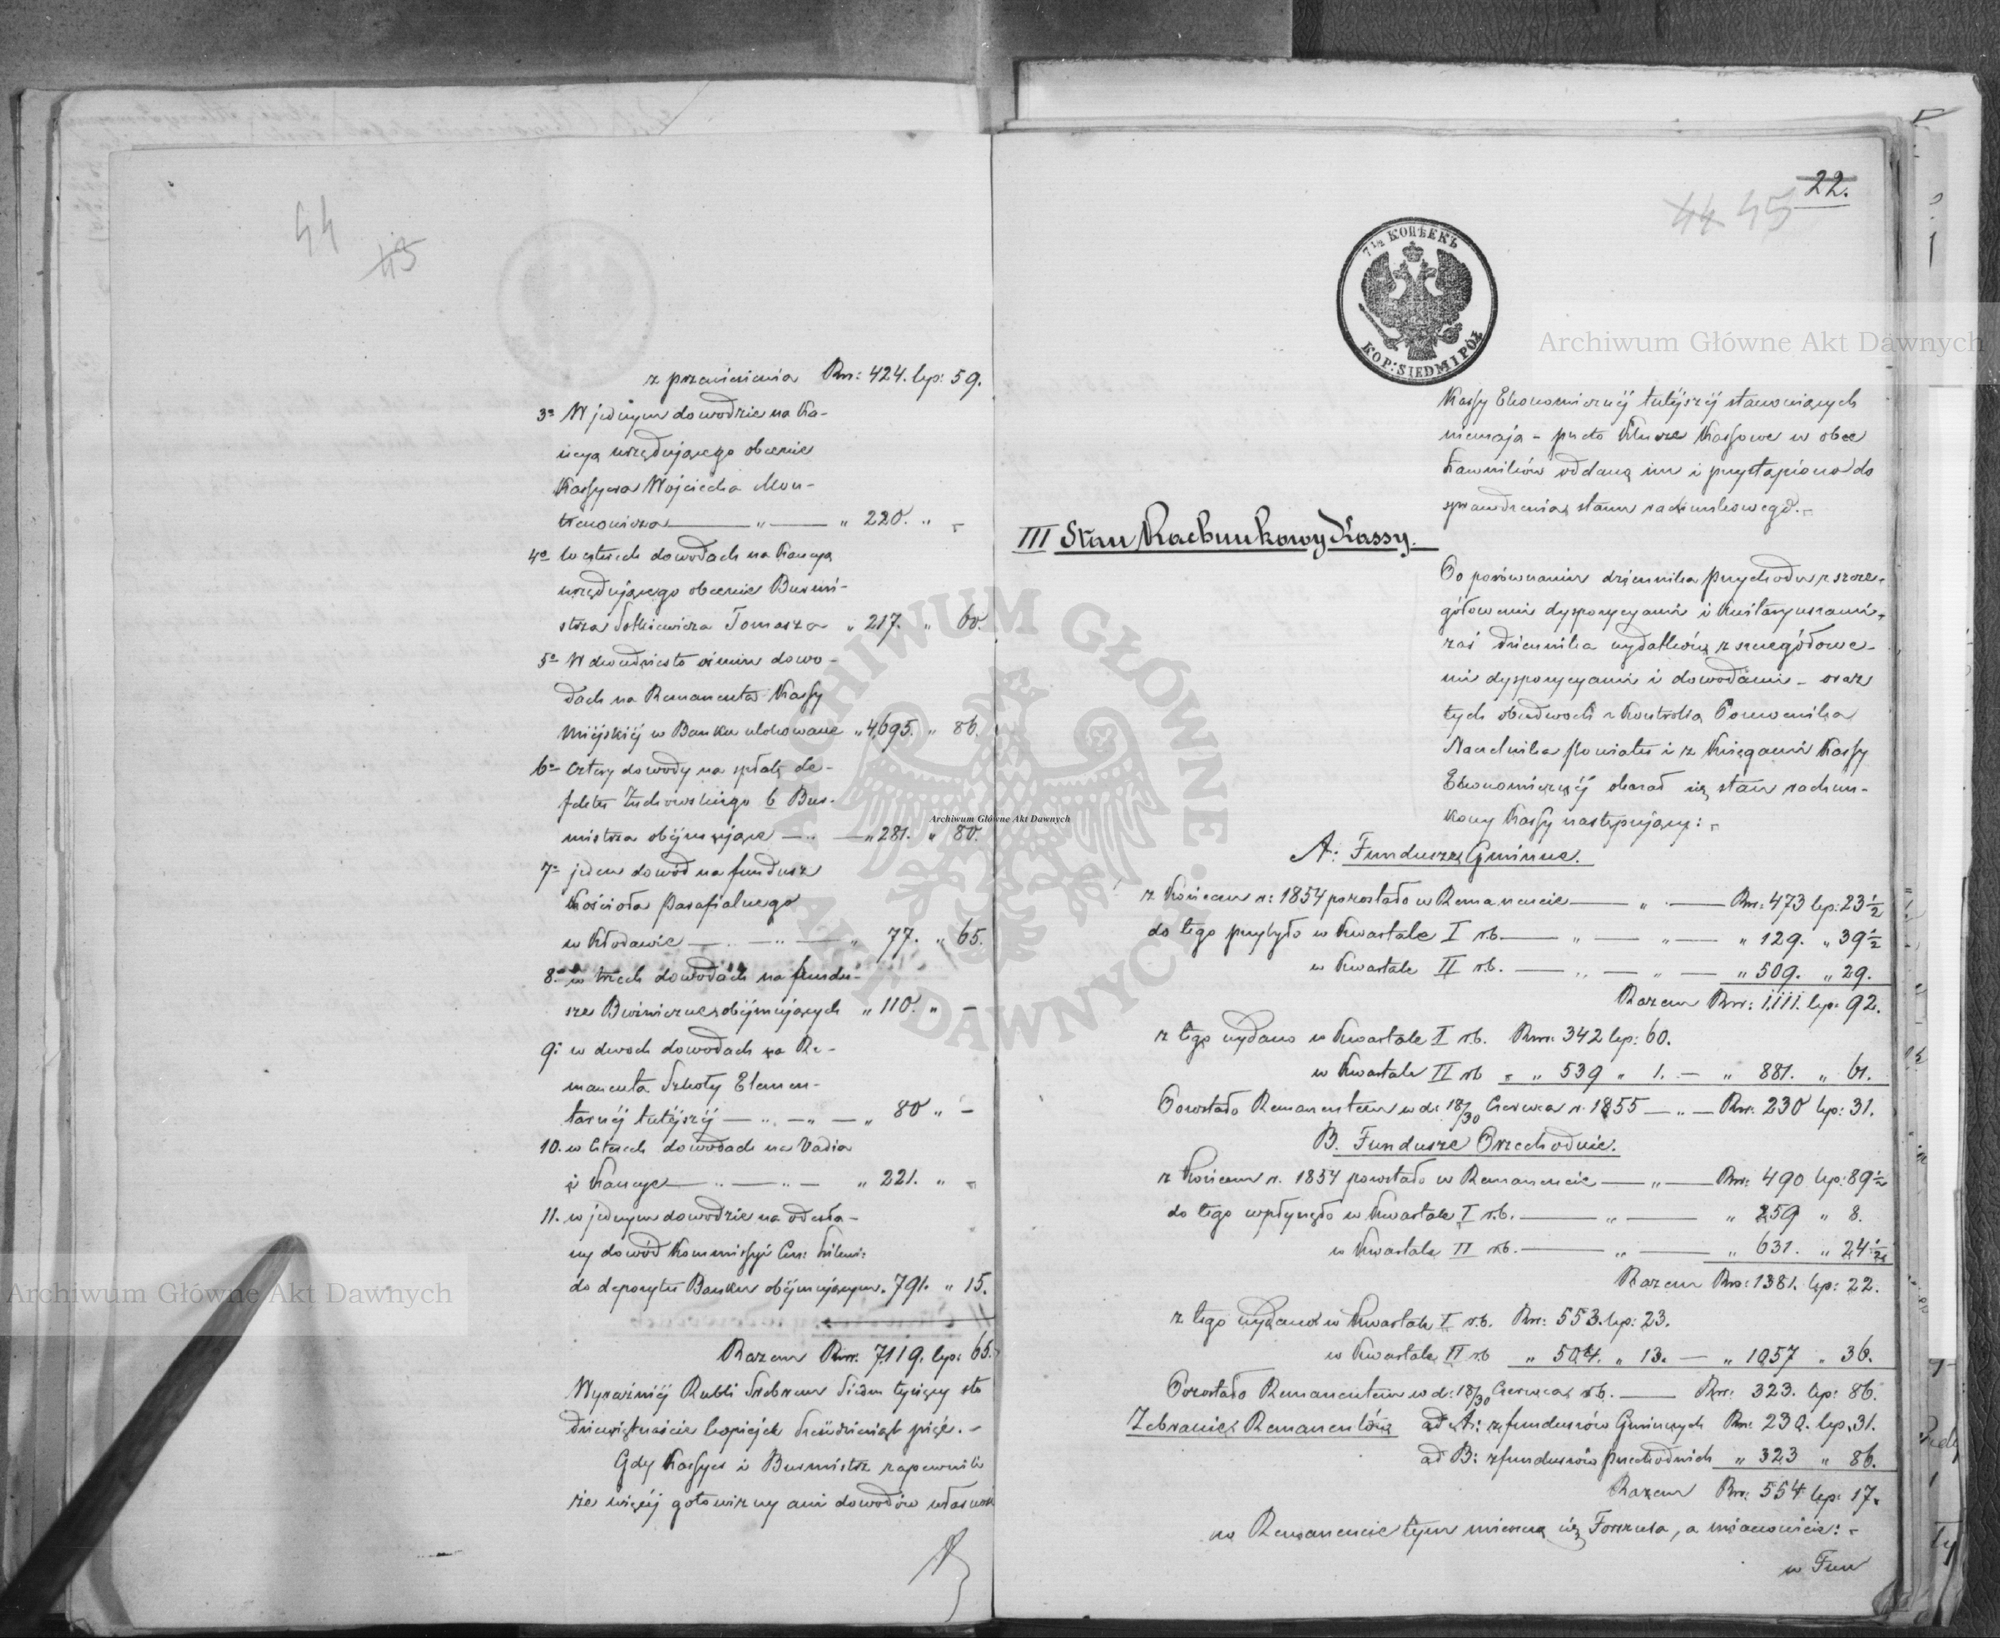 44
43
z przeniesienia Rsr: 424. kop: 59.
3º W jednym dowodzie na Ka-
ucyą urzędującego obecnie
Kassyera Wojciecha Mon-
" 220. " -
4º w cztrech dowodach na Kaucyą
urzędującego obecnie Burmi-
strza Tomasza " 217. " 60.
5º W dwudziestu ośmiu dowo-
dach na Remanenta Kassy
Miejskiej w Banku ulokowane " 4,695. " 86.
6º cztery dowody na spłatę de-
fektu Żuchowskiego b. Bur-
mistrza obejmujące " 281. " 80.
7º jeden dowód na fundusz
Kościoła Parafialnego
w Kłodawie " 77. " 65.
8º w trzech dowodach na fundu-
sze Bużnicze obejmujących " 110. " -
9: w dwóch dowodach na Re-
manenta Szkoły Elemen-
tarnéj tutéjszéj " 80 " -
10. w cztrech dowodach na Vadia
i Kaucye " 221. " -
11. w jednym dowodzie na odesła-
ny dowód Kommissyi
do depozytu Banku obejmującym " 791. " 15.
Razem Rsr. 7,119. kop: 65.
Wyraźniéj Rubli Srebrem Siedm tysięcy sto
dziewiętnaście kopiejek sześćdziesiąt pięć. -
Gdy Kassyer i Burmistrz zapewnili
że więcéj gotowizny ani dowodów własność
22.
44 45
7½ КОПѢЕКЪ
KOP: SIEDM I PÓŁ
Kassy Ekonomicznéj tutéjszéj stanowiących
niemają - przeto Klucze Kassowe w obec
Ławników oddano im i przystąpiono do
sprawdzenia stanu rachunkowego. -
III Stan Rachunkowy Kassy.
Po porównaniu dziennika Przychodu z szcze-
gółowemi dyspozycyami i Kwitaryuszami,
zaś dziennika wydatków z szczegółowe-
mi dyspozycyami i dowodami - oraz
tych obudwóch z Kontrolą Pomocnika
Naczelnika Powiatu i z Księgami Kassy
Ekonomicznéj okazał się stan rachun-
kowy Kassy następujący: -
A: Fundusze Gminne.
z Końcem r: 1854 pozostało w Remanencie Rsr: 473 kop: 23½
do tego przybyło w Kwartale I r.b. " 129. " 39½
w Kwartale II r.b. " 509. " 29.
Razem Rsr: 1,111. kop: 92.
z tego wydano w Kwartale I r.b. Rsr: 342 kop: 60.
w Kwartale II r.b. " " 539 " 1. - " 881. " 61.
Pozostało Remanentem w d: 18/30 Czerwca r. 1855 Rsr. 230 kop: 31.
B. Fundusze Przechodnie.
z Końcem r. 1854 pozostało w Remanencie Rsr: 490 kop: 89½
do tego wpłynęło w Kwartale I r.b. " 259 " 8.
w Kwartale II r.b. " 631. " 24½
Razem Rsr: 1381. kop: 22.
z tego wydano w Kwartale I r.b. Rsr: 553. kop: 23.
w Kwartale II r.b. " 504. " 13. - " 1057 " 36.
Pozostało Remanentem w d: 18/30 Czerwca r.b. Rsr: 323. kop: 86.
Zebranie Remanentów ad A: z funduszów Gminnych Rsr: 230. kop. 31.
ad B: z funduszów Przechodnich " 323 " 86.
Razem Rsr: 554 kop: 17.
na Remanencie tym mieszczą się Forszusa, a mianowicie: -
w Fun
Archiwum Główne Akt Dawnych
Archiwum Główne Akt Dawnych
Archiwum Główne Akt Dawnych
ARCHIWUM GŁÓWNE AKT DAWNYCH